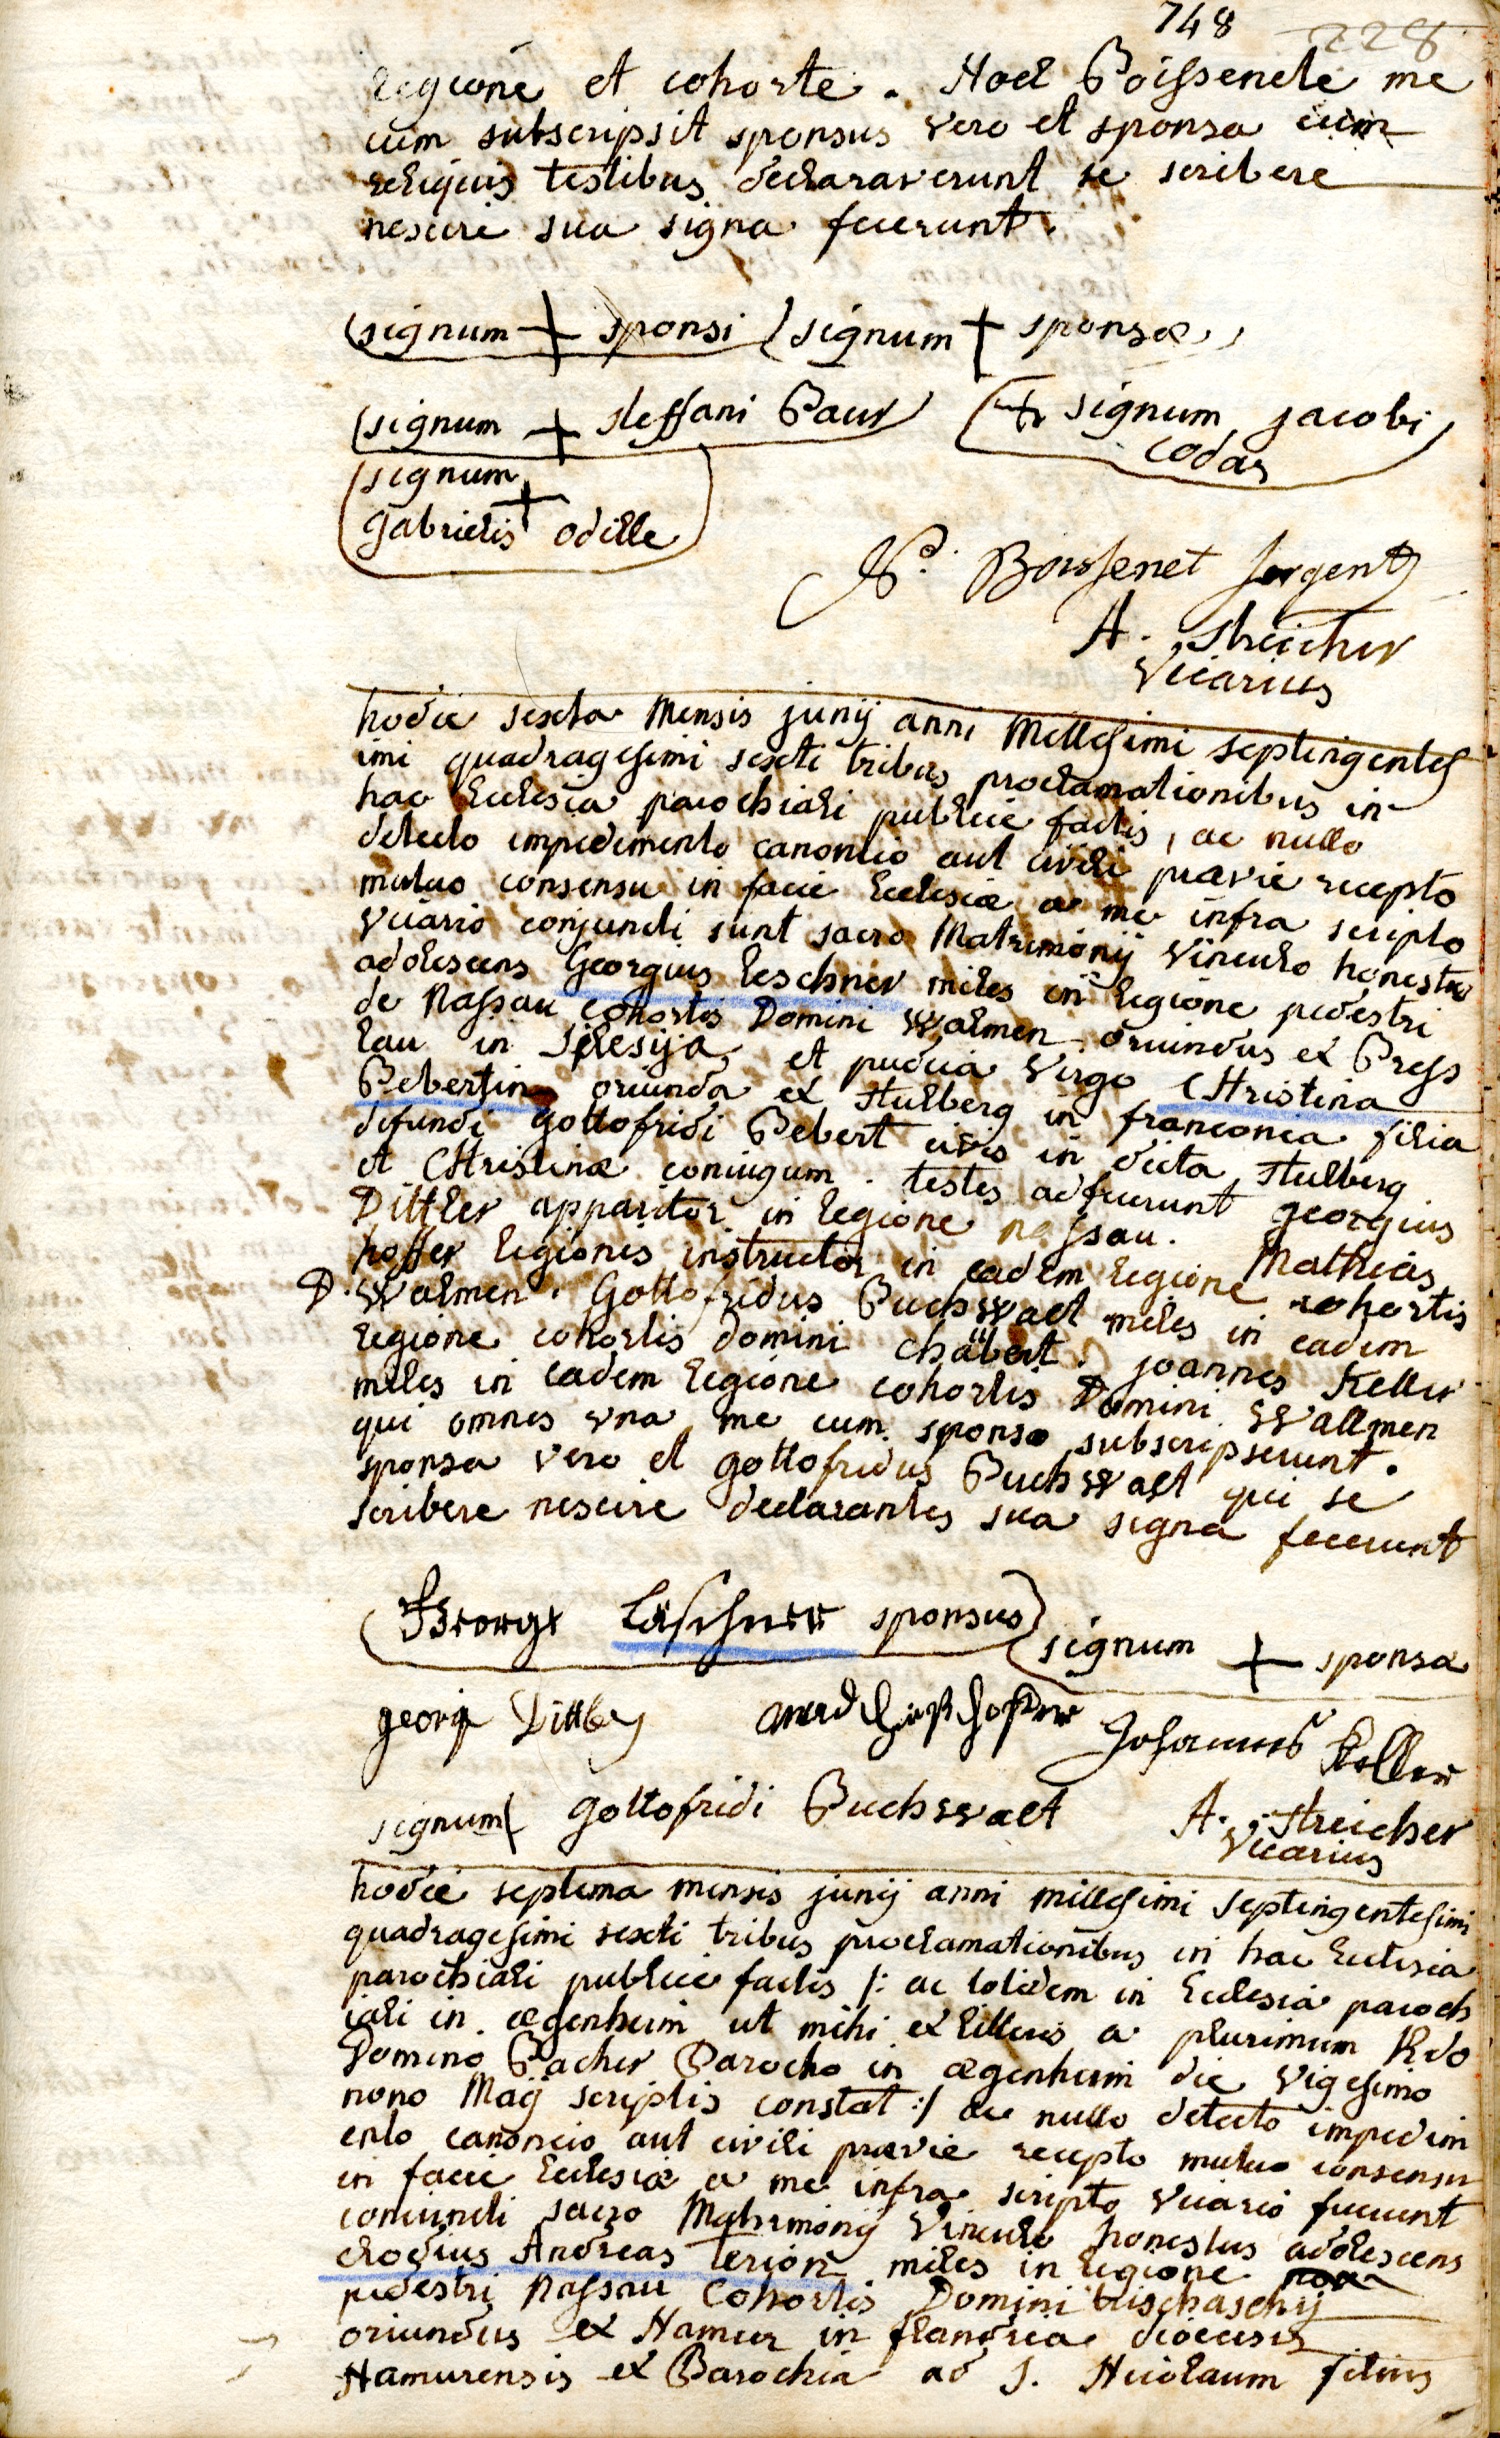 748 228
legione et cohorte. Noel Boissenete me
cum subscripsit sponsus vero et sponsa cum
reliquis testibus declaraverunt se scribere
nescire sua signa fecerunt.
signum + sponsi signum + sponsæ
signum + steffani Baur + signum jacobi
codas
signum +
gabrielis odille
N. Boissenet sergent
A. Streicher
Vicarius
hodie sexta Mensis junij anni Millesimi septingentes
imi quadragesimi sexti tribus proclamationibus in
hac Ecclesia parochiali publice factis, ac nullo
detecto impedimento canonico aut civili prævie recepto
mutuo consensu in facie Ecclesiæ a me infra scripto
vicario conjuncti sunt sacro Matrimonij vinculo honestus
adolescens Georgius Leschner miles in legione pedestri
de Nassau cohortis Domini Walmen oriundus ex Press
lau in Silesija et pudica virgo CHristina
Bebertin oriunda ex stulberg in franconia filia
defuncti gottofridi Bebert civis in dicta stulberg
et CHristinæ coniugum. testes adfuerunt georgius
Dittler apparitor in legione nassau. Mathias
hoffer legionis instructor in eadem legione cohortis
D. Walmen. Gottofridus Buchwalt miles in eadem
legione cohortis domini chabert. joannes Keller
miles in eadem legione cohortis Domini Wallmen
qui omnes una me cum sponso subscripserunt.
sponsa vero et gottofridus Buchwalt qui se
scribere nescire declarantes sua signa fecerunt
George Leschner sponsus signum + sponsa
georg Dittler Johannes Keller
signum gottofridi Buchwalt A. Streicher
Vicarius
hodie septima mensis junij anni millesimi septingentesimi
quadragesimi sexti tribus proclamationibus in hac Ecclesia
parochiali publice factis /: ac totidem in Ecclesia paroch
iali in ægenheim ut mihi ex litteris a plurimum Rdo
Domino Bacher Parocho in ægenheim die vigesimo
nono Maij scriptis constat :/ ac nullo detecto impedim
ento canonico aut civili prævie recepto mutuo consensu
in facie Ecclesiæ a me infra scripto vicario fuerunt
coniuncti sacro Matrimonij vinculo honestus adolescens
elogius Andreas Terion miles in legione
pedestri Nassau cohortis Domini
oriundus ex Namur in flandria diocesis
Namurensis ex Parochia ad S. Nicolaum filius